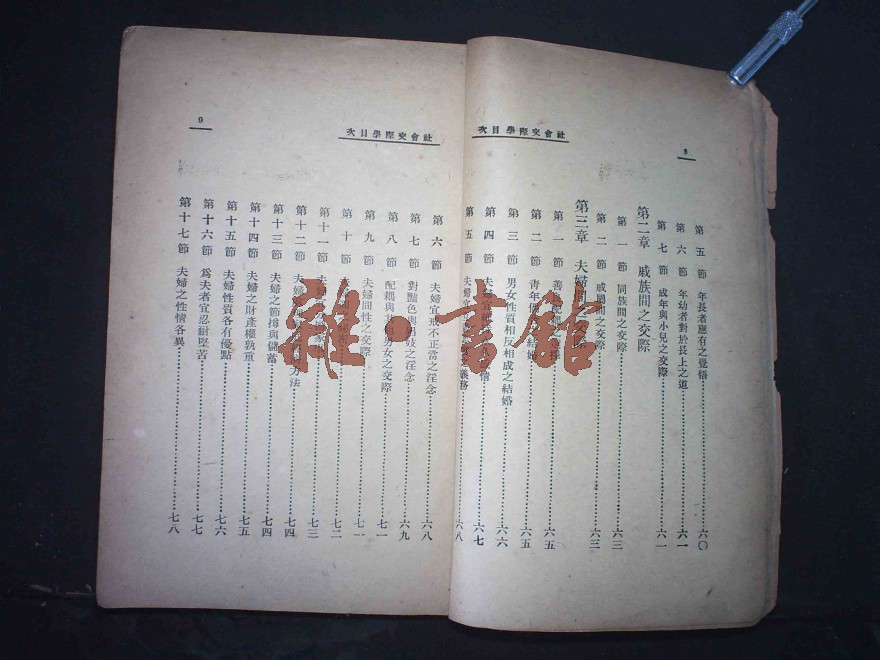 8
社會交際學目次
第五節 年長者應有之覺悟…………六〇
第六節 年幼者對於長上之道…………六一
第七節 成年與小兒之交際…………六一
第二章 戚族間之交際
第一節 同族間之交際…………六三
第二節 戚間之交際…………六三
第三章 夫婦間之交際
第一節 善…………六五
第二節 青年…結婚…………六五
第三節 男女性質相反相成之結婚…………六六
第四節 夫婦…情…………六七
第五節 夫婦…義務…………六八
社會交際學目次
9
第六節 夫婦宜戒不正當之淫念…………六八
第七節 對豔色與…妓之淫念…………六九
第八節 配耦與…男女之交際…………七一
第九節 夫婦間性之交際…………七一
第十節…………七二
第十一節 夫婦…………七三
第十二節 夫婦…方法…………七四
第十三節 夫婦之節撙與儲蓄…………七四
第十四節 夫婦之財產權孰重…………七五
第十五節 夫婦性質各有優點…………七六
第十六節 爲夫者宜忍耐堅苦…………七七
第十七節 夫婦之性情各異…………七八
雜·書館